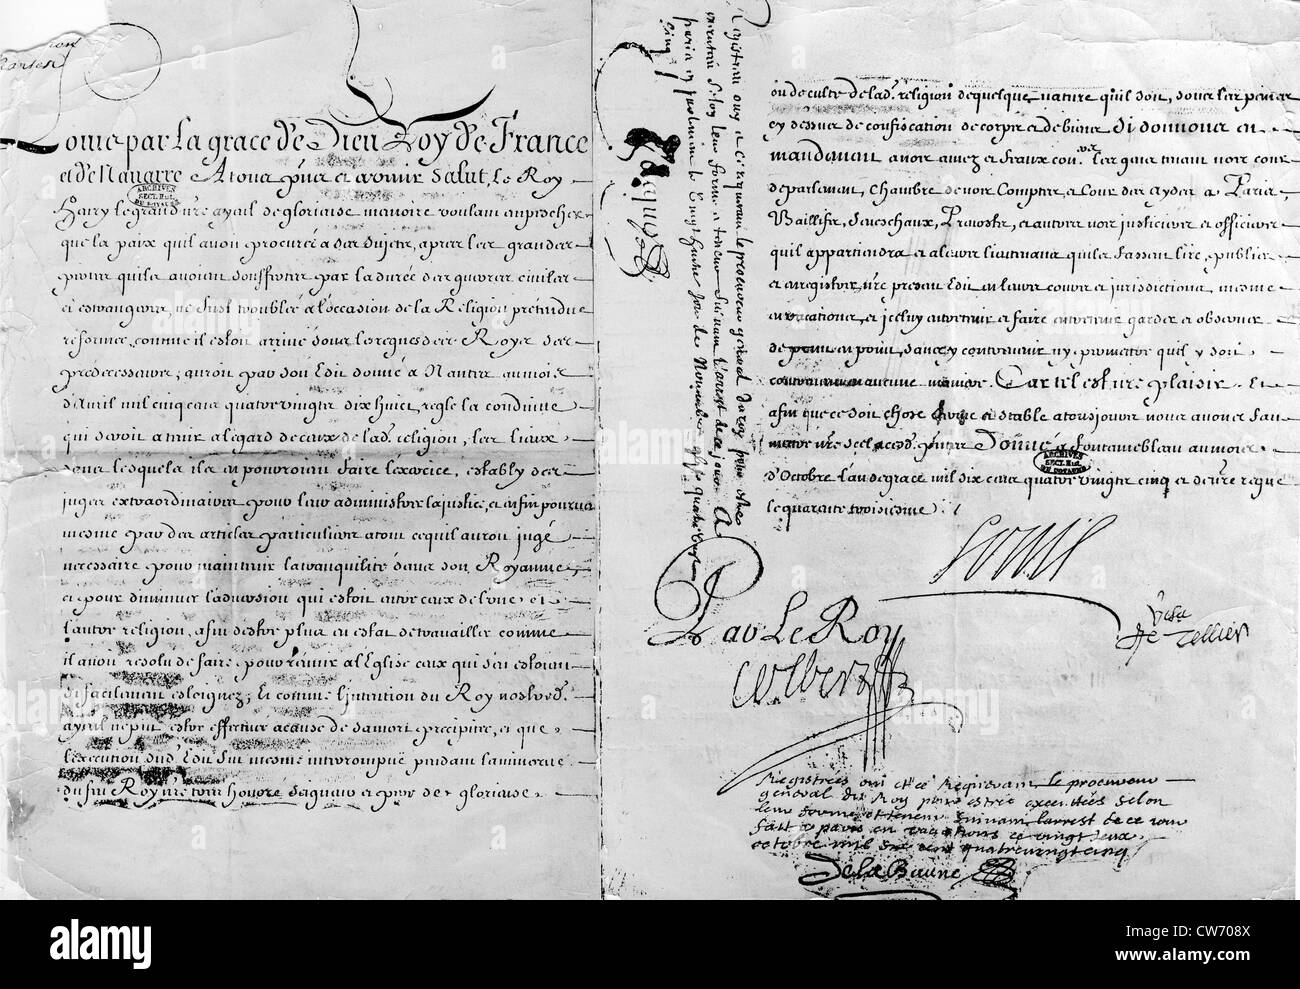 Louis par la grace de Dieu Roy de France
et de Navarre A tous p̃ns et a venir Salut, Le Roy
Henry le grand n̄re ayeul de glorieuse memoire voulant empescher
que la paix qu'il avoit procurée a ses Sujets, apres les grandes
pertes qu'ils avoient soufferttes par la durée des guerres civiles
et estrangeres, ne fust troublée a l'occasion de la Religion pretendue
reformée, comme il estoit arrivé sous les regnes des Roys ses
predecesseurs, auroit par son Edit donné a Nantes au mois
d'Avril mil cinq cens quatre vingts dix huict, reglé la conduitte
qui seroit a tenir a l'egard de ceux de lad. religion, les lieux
dans lesquels ils en pourroient faire l'exercice, estably des
juges extraordinaires pour leur administrer la justice, et enfin pourveu
mesme par des articles particuliers a tout ce qu'il auroit jugé
necessaire pour maintenir la tranquilité dans son Royaume,
et pour diminuer l'adversion qui estoit entre ceux de l'une et
l'autre religion, afin d'estre plus en estat de travailler comme
il avoit resolu de faire pour reunir a l'Eglise ceux qui s'en estoient
si facilement esloignez; Et comme l'intention du Roy nostred.
ayeul ne put estre effectuée a cause de sa mort precipitée, et que
l'execution dud. Edit fut mesme interrompue pendant la minorité
du feu Roy n̄re tres honoré Seigneur et pere de glorieuse
ARCHIVES
SECT. HIST.
DU ROYAUME
ou de culte de lad. religion de quelque nature qu'il soit, sous les peines
cy dessus de confiscation de corps et de biens Si donnons en
mandement a nos amez et feaux con.ers les gens tenans nore cour
de parlement, Chambre de nos Comptes, et Cour des Aydes a Paris
Baillifs, Seneschaux, Prevosts, et autres nos justiciers et officiers
qu'il appartiendra et a leurs lieutenans qu'ils fassent lire, publier
et enregistrer n̄re present Edit en leurs cours et jurisdictions, mesme
en vacations, et icelluy entretenir et faire entretenir garder et observer
de point en point, sans y contrevenir ny permettre qu'il y soit
contrevenu en aucune maniere. Car tel est n̄re plaisir. Et
afin que ce soit chose ferme et stable a tousjours nous avons fait
mettre n̄re seel a cesd. p̃ntes Donné a Fontainebleau au mois
d'Octobre l'an de grace mil six cens quatre vingts cinq et de n̄re regne
le quarante troisiesme.
ARCHIVES
SECT. HIST.
DU ROYAUME
Louis
Visa
Le Tellier
Par Le Roy
Colbert
Registrées ouï et ce Requerant le procureur
general du Roy pour estre executées selon
leur forme et teneur suivant l'arrest de ce jour
fait a paris en vacations ce vingt deux
octobre mil six cent quatre vingt cinq
De la Baune
Registrées ouy et ce requerant le procureur general du roy pour estre
executées selon leur forme et teneur suivant l'arrest de ce jour A
paris en parlement le
Jacques
alamy
alamy stock photo
Image ID: CW708X
www.alamy.com